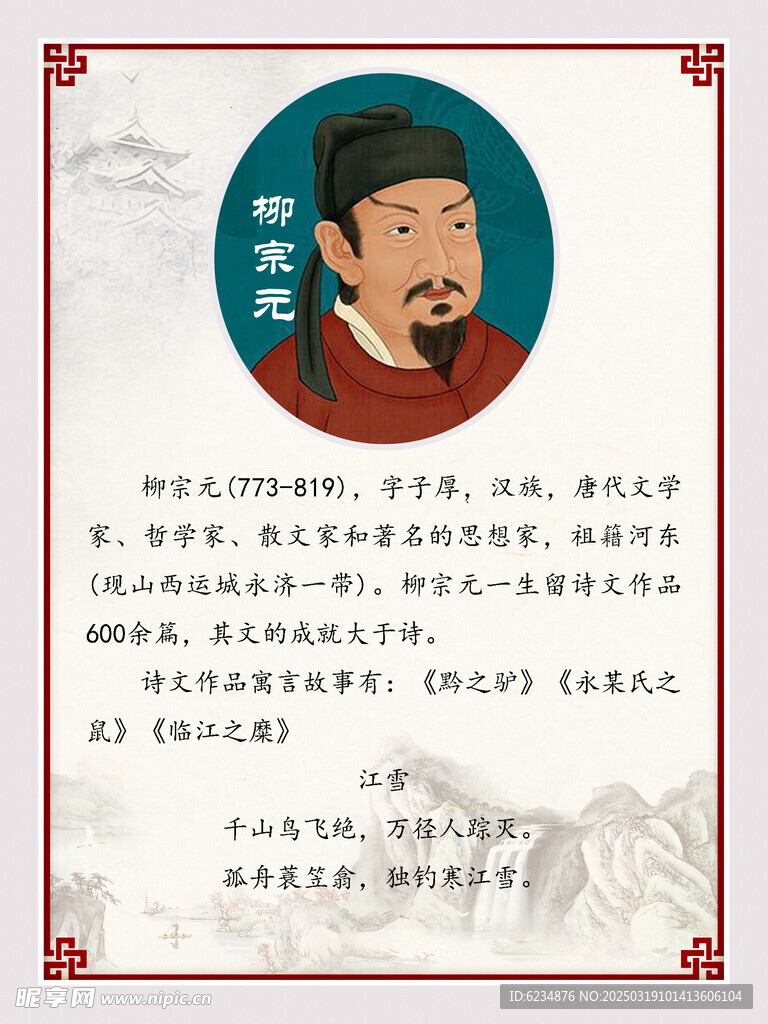 柳宗元
柳宗元(773-819)，字子厚，汉族，唐代文学
家、哲学家、散文家和著名的思想家，祖籍河东
(现山西运城永济一带)。柳宗元一生留诗文作品
600余篇，其文的成就大于诗。
诗文作品寓言故事有：《黔之驴》《永某氏之
鼠》《临江之糜》
江雪
千山鸟飞绝，万径人踪灭。
孤舟蓑笠翁，独钓寒江雪。
昵享网 www.nipic.cn
ID:6234876 NO:20250319101413606104